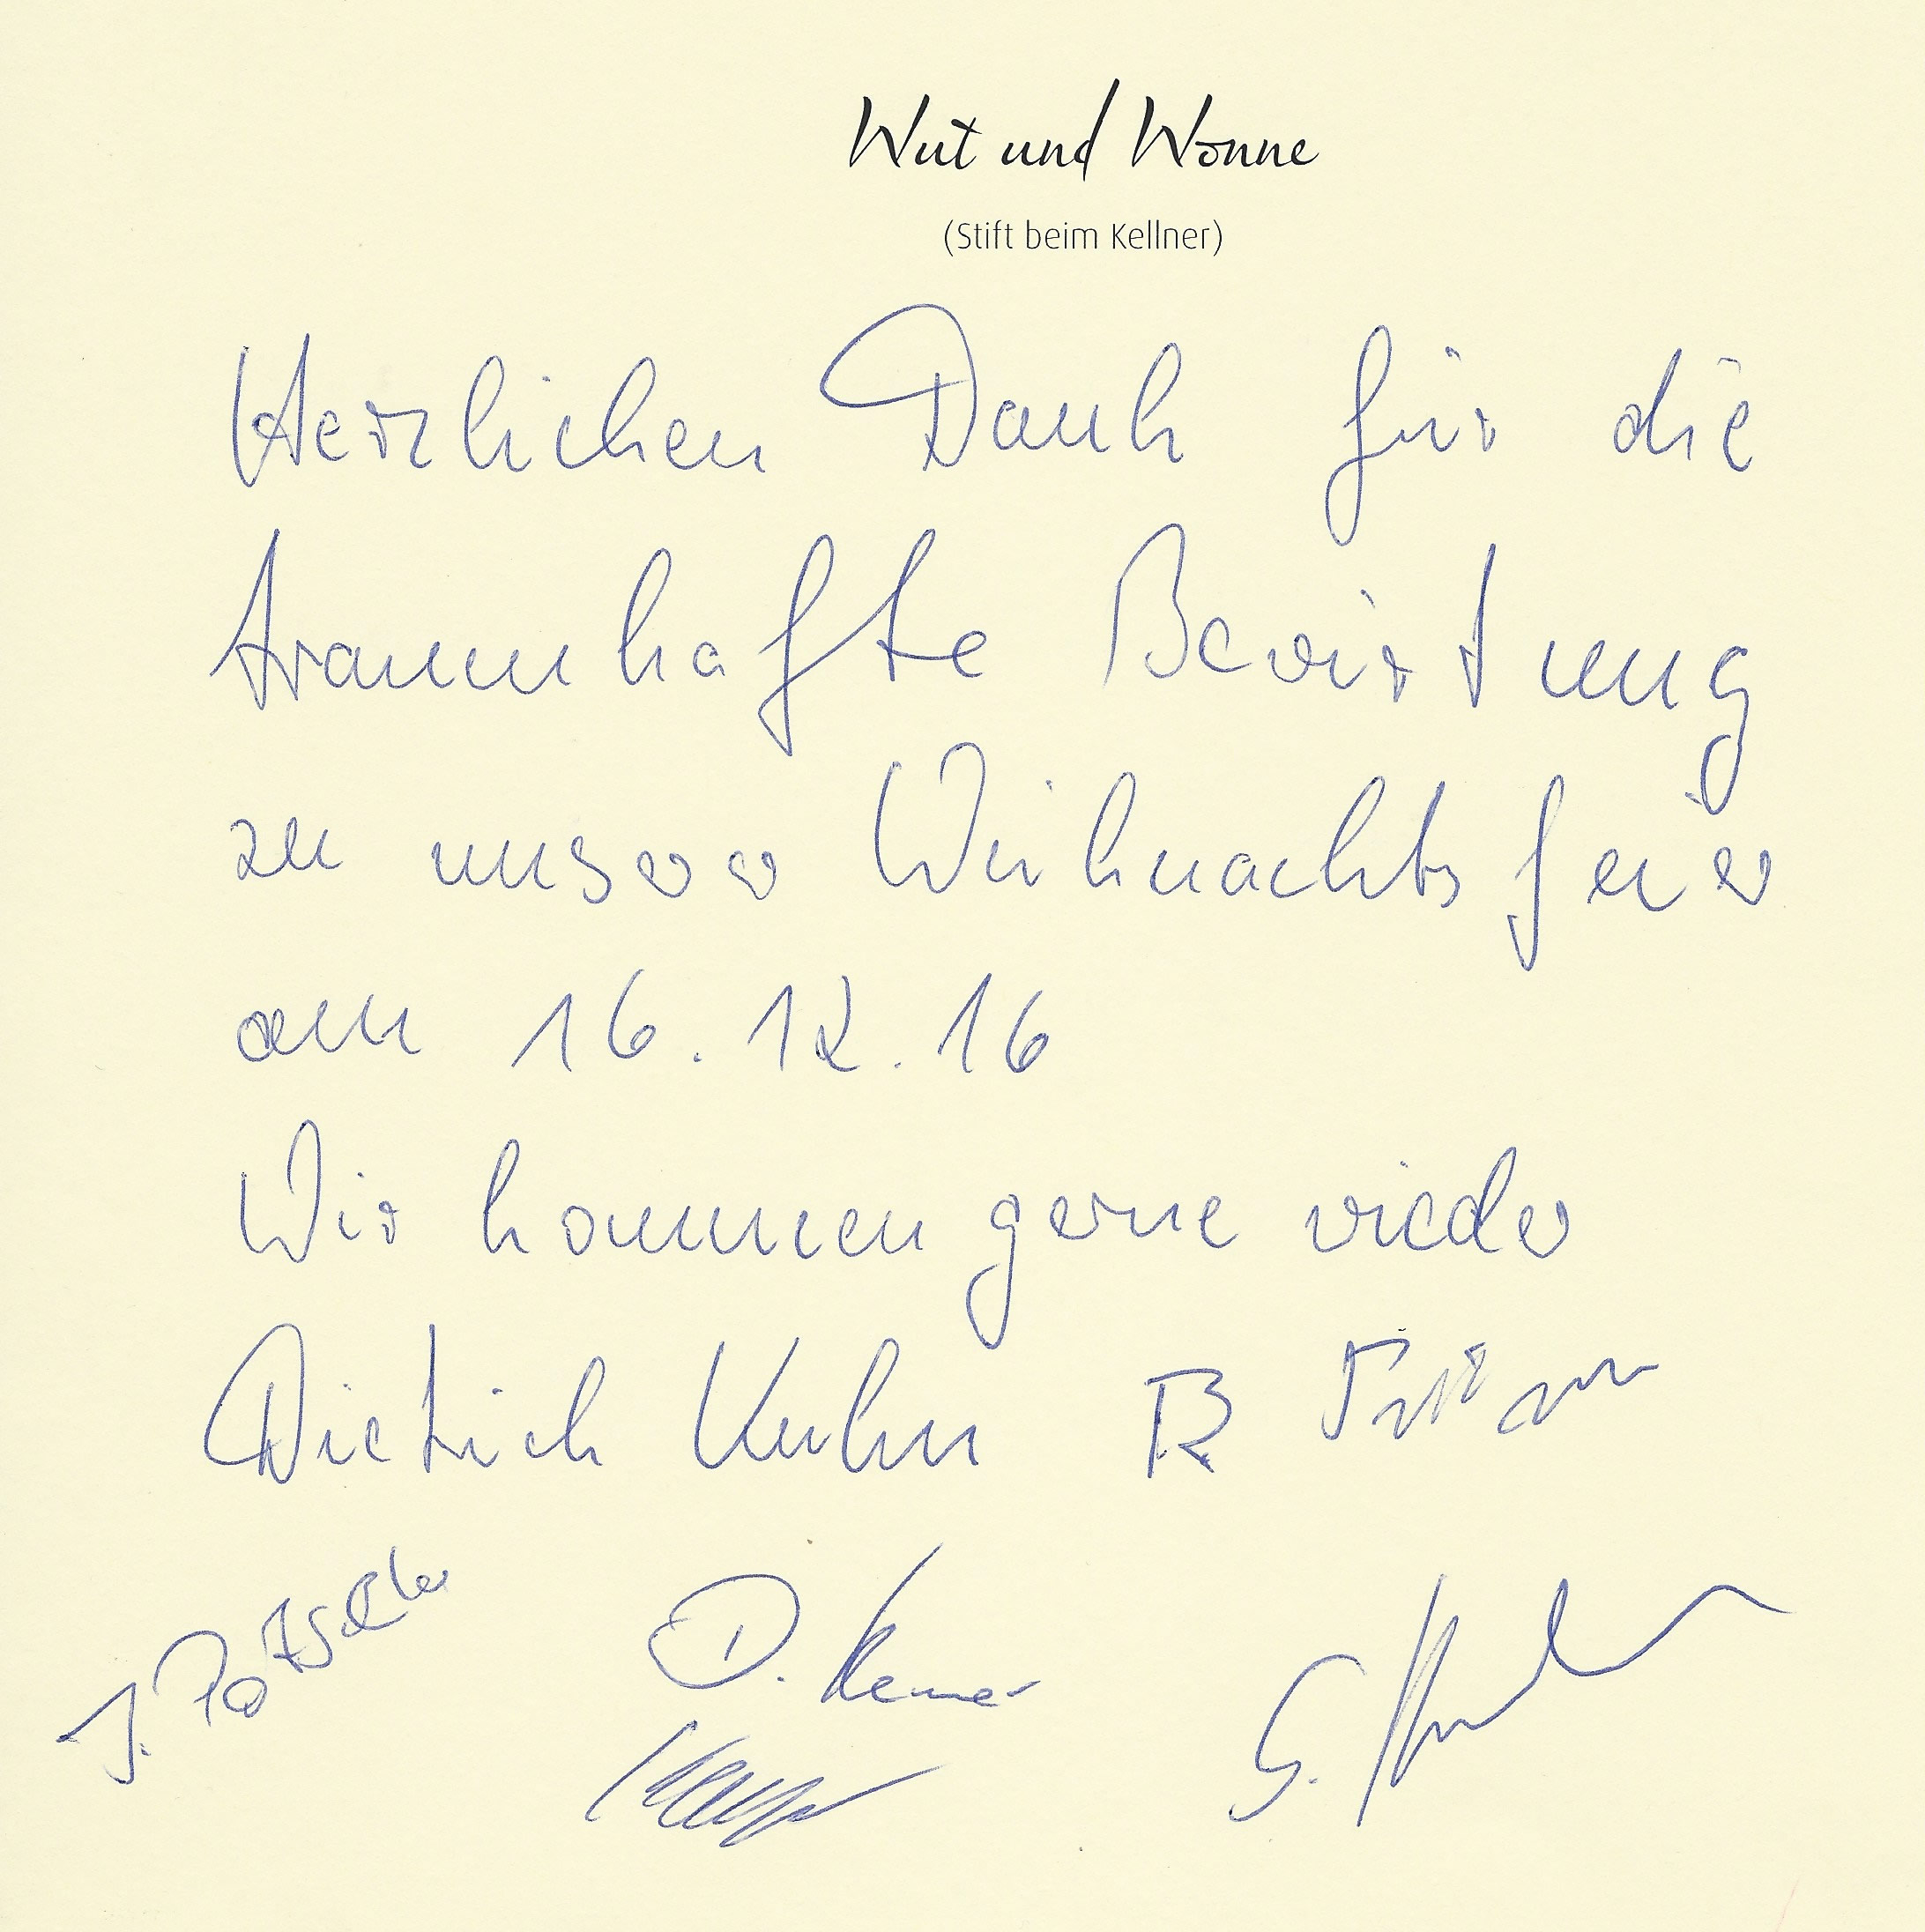 Wut und Wonne
(Stift beim Kellner)
Herzlichen Dank für die
traumhafte Bewirtung
zu unserer Weihnachtsfeier
am 16.12.16
Wir kommen gerne wieder
Dietrich Kuhn R
J. Pötzschler
D.
G.